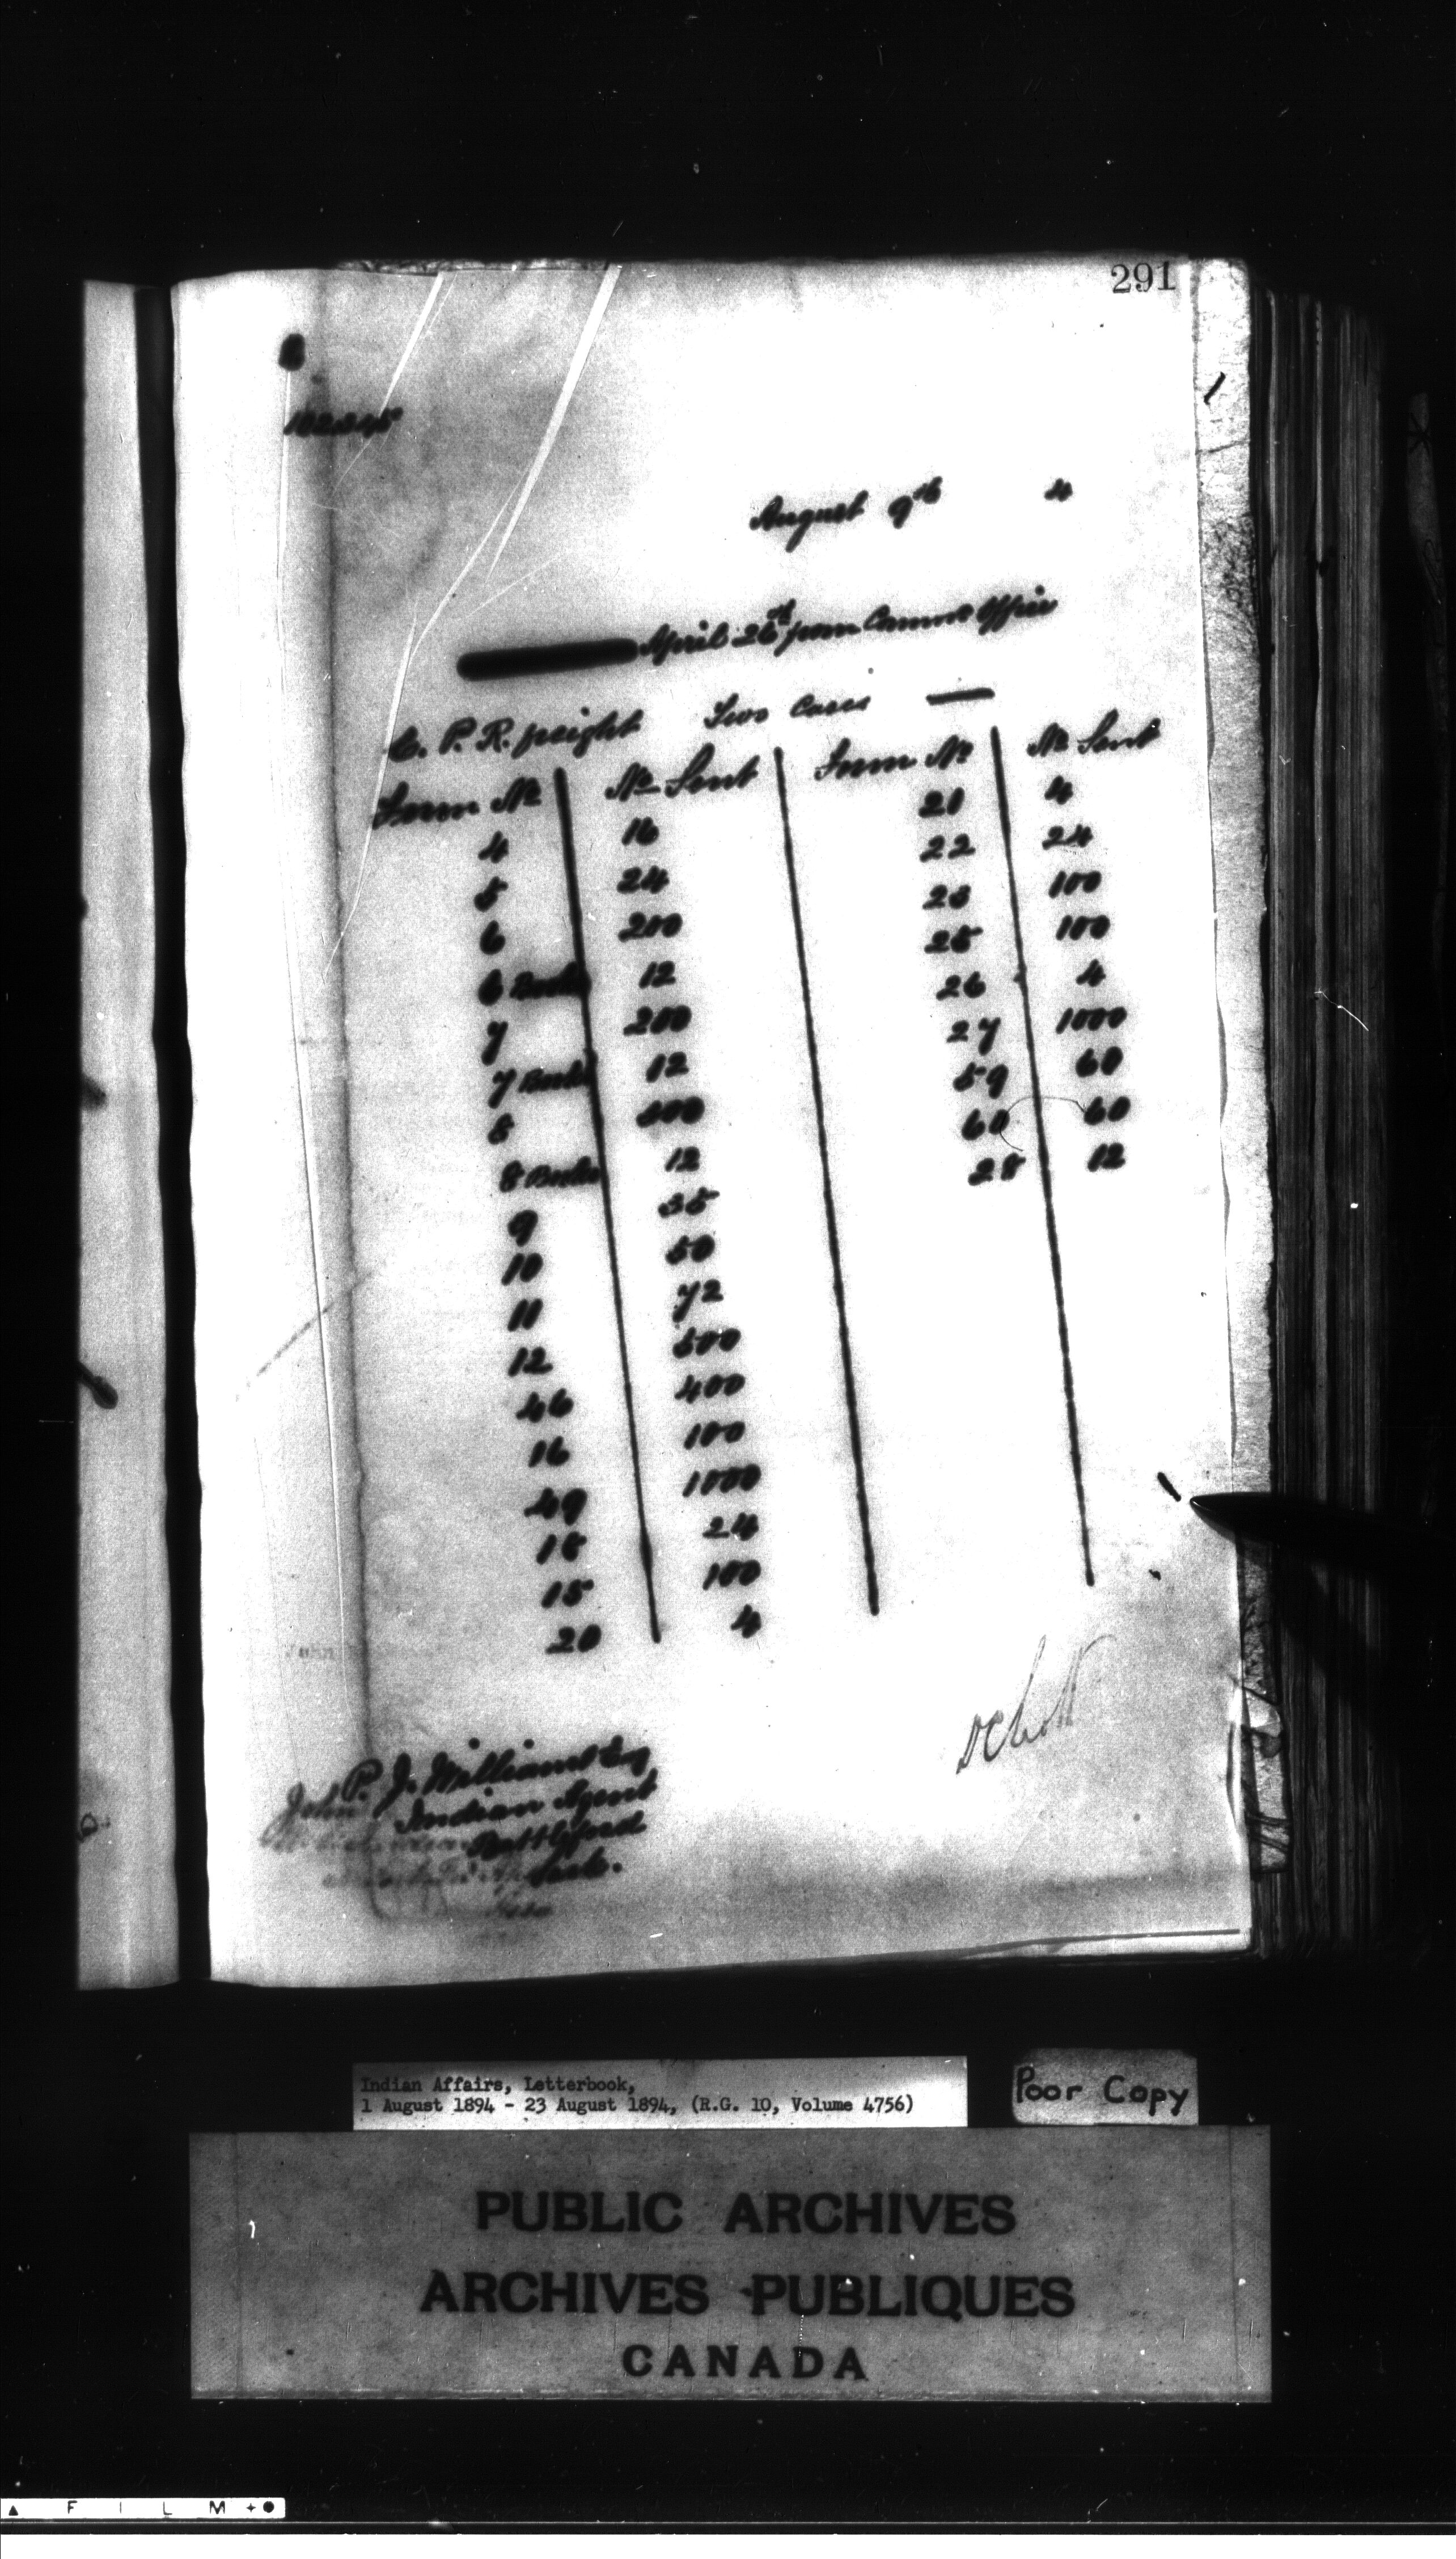 291
August 9th 4
April 26th from Commrs Office
C. P. R. freight Two Cases
Form No No Sent Form No No Sent
4 16 21 4
5 24 22 24
6 200 23 100
6 Books 12 25 100
7 200 26 4
7 Books 12 27 1000
8 59 60
8 Books 12 60 60
9 35 28 12
10 50
11 72
12 500
46 400
16 100
49 1000
18 24
15 100
20 4
P. J. Williams Esq
Indian Agent
Battleford
Sask.
John
Indian Affairs, Letterbook,
1 August 1894 - 23 August 1894, (R.G. 10, Volume 4756)
Poor Copy
PUBLIC ARCHIVES
ARCHIVES PUBLIQUES
CANADA
FILM